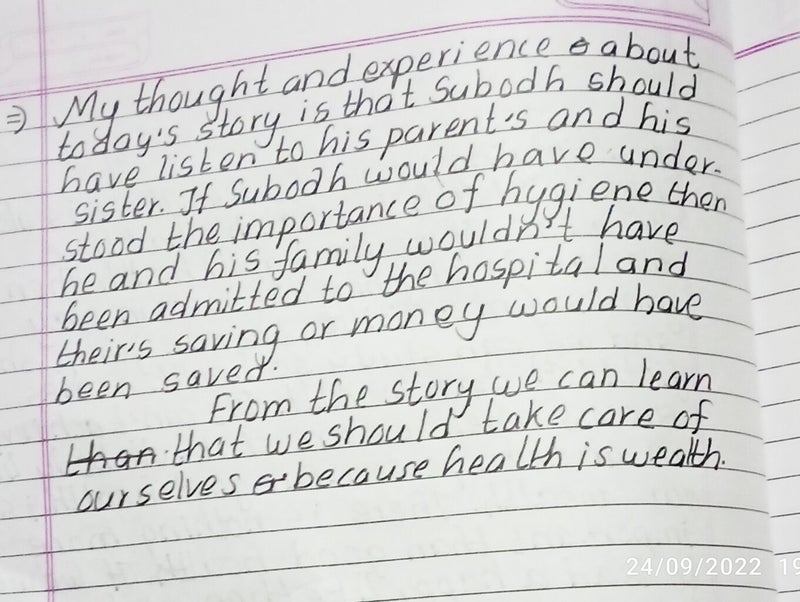 ⇒ My thought and experience about
today's story is that Subodh should
have listen to his parent's and his
sister. If Subodh would have under-
stood the importance of hygiene then
he and his family wouldn't have
been admitted to the hospital and
their's saving or money would have
been saved.
From the story we can learn
than that we should take care of
ourselves because health is wealth.
24/09/2022 19